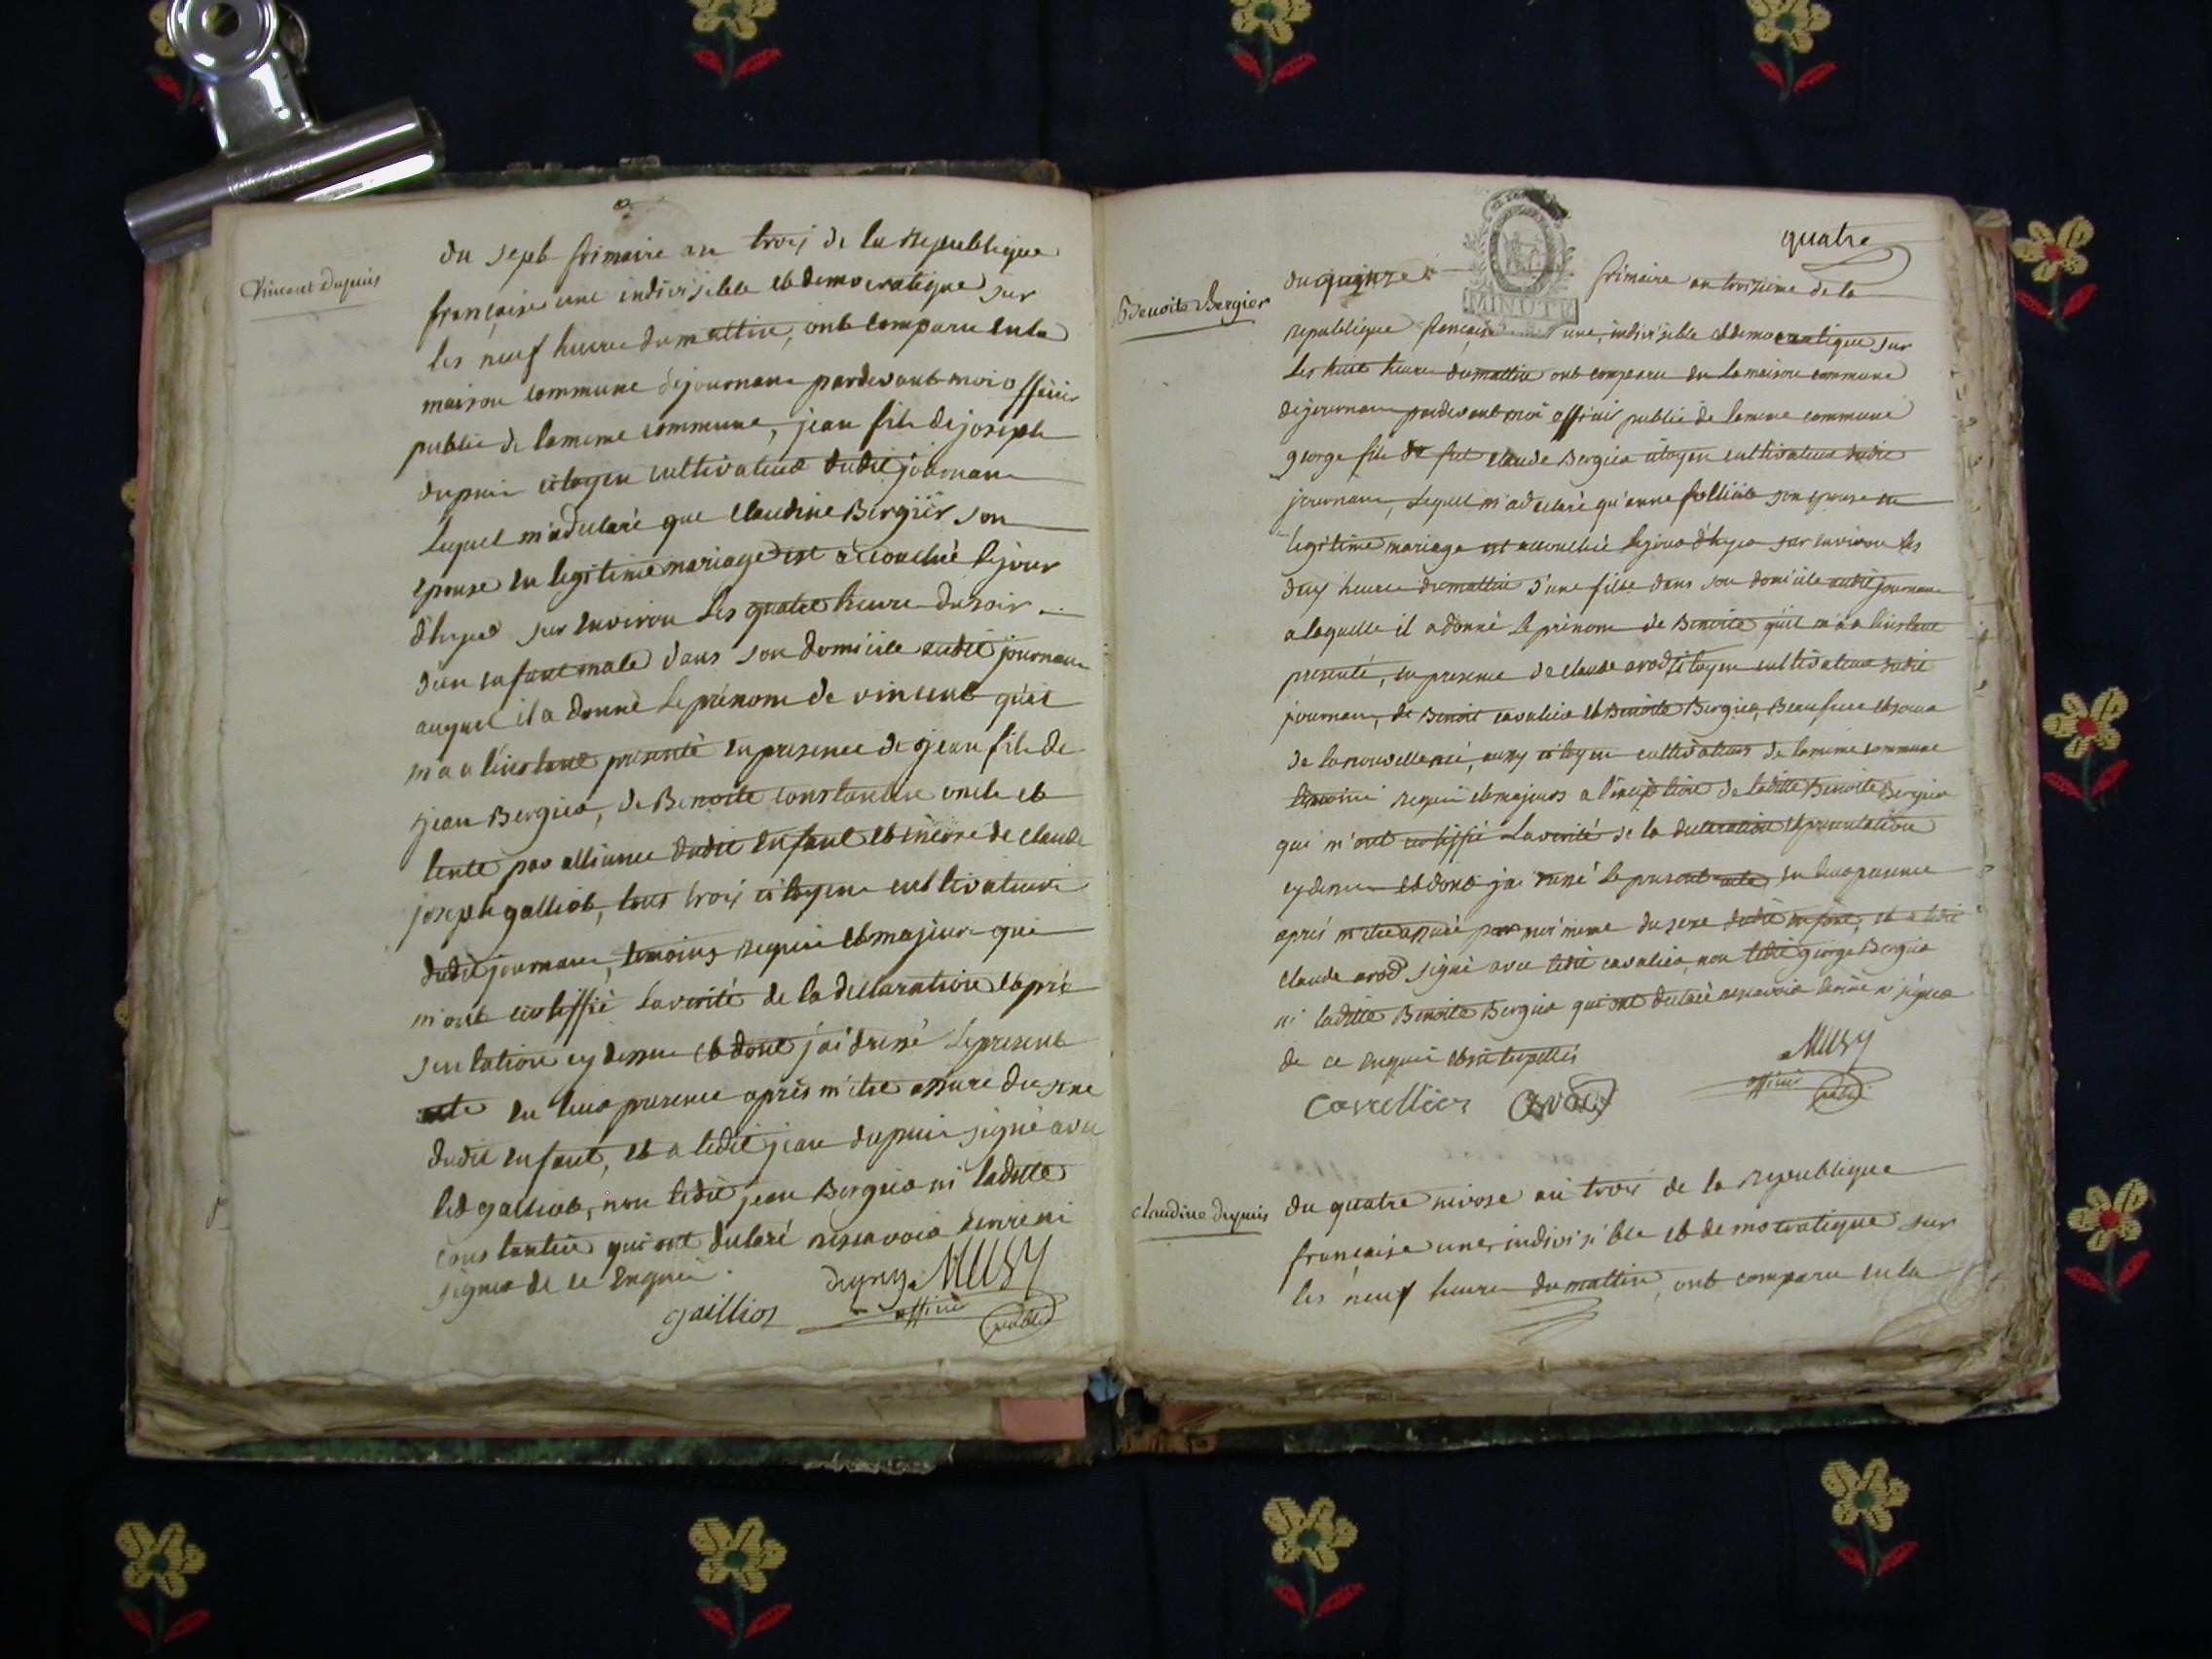 Vincent dupuis
du sept frimaire an trois de la Republique
française une indivisible et democratique sur
les neuf heure du mattin, ont comparu en la
maison commune de journans pardevant moi officier
public de la meme commune, jean fils de joseph
dupuis citoyen cultivateur dudit journans
Lequel m'a declaré que claudine Bergier son
epouse en legitime mariage est accouchée le jour
d'hyer sur environ les quatre heure du soir
d'un enfant male dans son domicile audit journans
auquel il a donné le prénom de vincent qu'il
m'a a l'instant presenté en presence de jean fils de
jean Bergier, de Benoite constantin oncle et
tente par alliance dudit enfant et de claude
joseph galliot, tous trois citoyens cultivateurs
dudit journans, temoins requis et majeurs qui
m'ont certiffié la verité de la declaration et pré
sentation cy dessus et dont j'ai dressé le present
acte en leur presence après m'etre assuré du sexe
dudit enfant, et a ledit jean dupuis signé avec
led galliot, non ledit jean Bergier ni laditte
constantin qui ont declaré ne scavoir ecrire ni
signer de ce enquis.
dupuy MUSY
gaillio officier
public
quatre
MINUTE
Benoite Bergier
du quinze frimaire an troisieme de la
republique française une, indivisible et democratique sur
les huit heure du mattin ont comparu en la maison commune
de journans pardevant moi officier public de la meme commune
george fils de feu claude Bergier citoyen cultivateur dudit
journans, Lequel m'a declaré qu'anne folliet son epouse en
legitime mariage est accouchée le jour d'hyer sur environ les
deux heure du mattin d'une fille dans son domicile audit journans
a laquelle il a donné le prénom de Benoite qu'il m'a a l'instant
presenté, en presence de claude arod citoyen cultivateur dudit
journans, de Benoit cavalier et Benoite Bergier, Beaufrere et soeur
de la nouvelle née, aussy citoyen cultivateurs de la meme commune
temoins requis et majeurs a l'exception de laditte Benoite Bergier
qui m'ont certiffié la verité de la declaration et presentation
cy dessus et dont j'ai dressé le present acte en leur presence
après m'etre assuré par moi meme du sexe dudit enfant, et a ledit
claude arod signé avec ledit cavalier, non ledit george Bergier
ni laditte Benoite Bergier qui ont declaré ne scavoir ecrire ni signer
de ce enquis et interpellés
MUSY
officier
public
cavellier arod
claudine dupuis
du quatre nivose an trois de la republique
française une, indivisible et democratique sur
les neuf heure du mattin, ont comparu en la